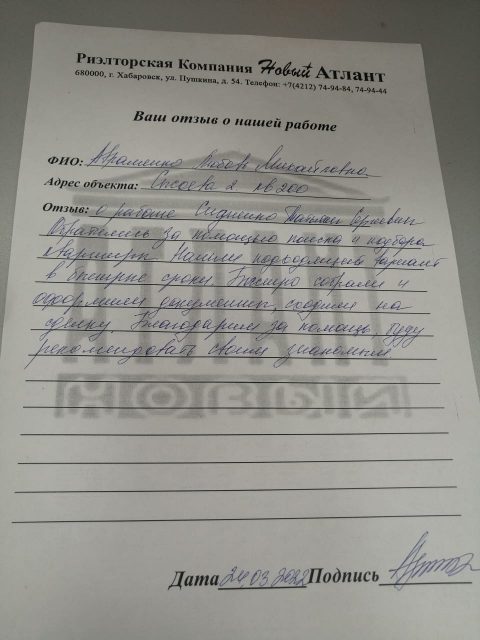 Риэлторская Компания Новый Атлант
680000, г. Хабаровск, ул. Пушкина, д. 54. Телефон: +7(4212) 74-94-84, 74-94-44
Ваш отзыв о нашей работе
ФИО: Авраменко Любовь Михайловна
Адрес объекта: Сысоева 2 кв 200
Отзыв: о работе Сидненко Татьяны
Обратились за помощью поиска и подбора
квартиры. Нашли подходящий вариант
в быстрые сроки. Быстро собрали и
оформили документы, сходили на
сделку. Благодарим за помощь. Буду
рекомендовать своим знакомым.
НОВЫЙ
Дата 24.03.2022 Подпись